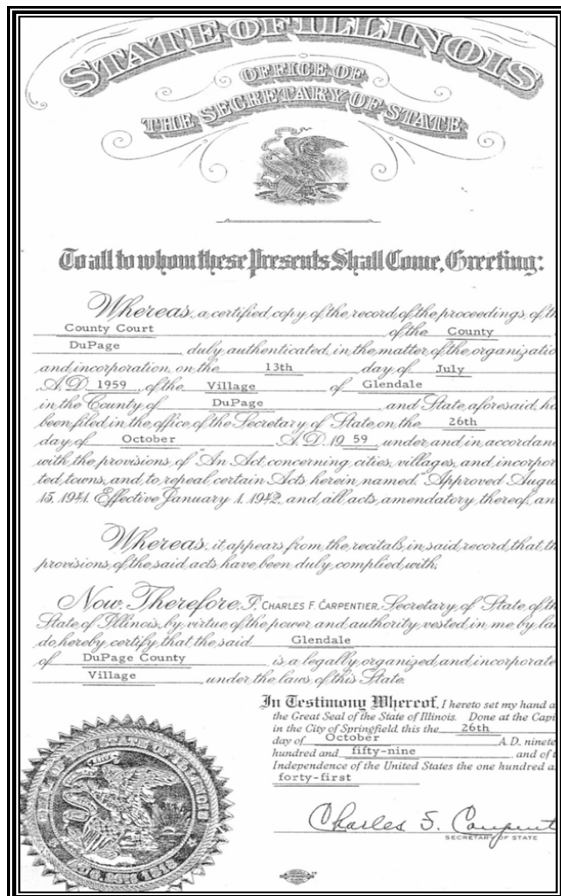 STATE OF ILLINOIS
OFFICE OF
THE SECRETARY OF STATE
To all to whom these Presents Shall Come, Greeting:
Whereas, a certified copy of the record of the proceedings of th
County Court of the County
DuPage duly authenticated, in the matter of the organizatio
and incorporation, on the 13th day of July
A.D. 1959, of the Village of Glendale
in the County of DuPage and State aforesaid, ha
been filed in the office of the Secretary of State, on the 26th
day of October A.D. 19 59 under and in accordan
with the provisions of "An Act concerning cities, villages, and incorpor
ted towns, and to repeal certain Acts herein named." Approved Augu
15, 1941. Effective January 1, 1942, and all acts amendatory thereof, an
Whereas, it appears from the recitals in said record that th
provisions of the said acts have been duly complied with,
Now Therefore, I, CHARLES F. CARPENTIER, Secretary of State of th
State of Illinois, by virtue of the power and authority vested in me by la
do hereby certify that the said Glendale
of DuPage County is a legally organized and incorporate
Village under the laws of this State.
In Testimony Whereof, I hereto set my hand a
the Great Seal of the State of Illinois. Done at the Capi
in the City of Springfield this the 26th
day of October A.D. ninete
hundred and fifty-nine and of t
Independence of the United States the one hundred a
forty-first
Charles F. Carpent
SECRETARY OF STATE